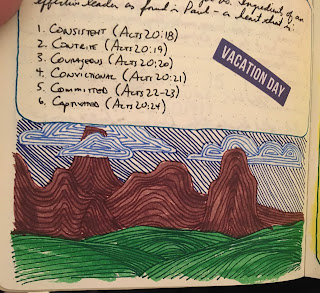 Ingredient of an
effective leader as found in Paul -
1. CONSISTENT (ACTS 20:18)
2. CONTRITE (ACTS 20:19)
3. COURAGEOUS (ACTS 20:20)
4. CONVICTIONAL (ACTS 20:21)
5. COMMITTED (ACTS 22-23)
6. CAPTIVATED (ACTS 20:24)
VACATION DAY